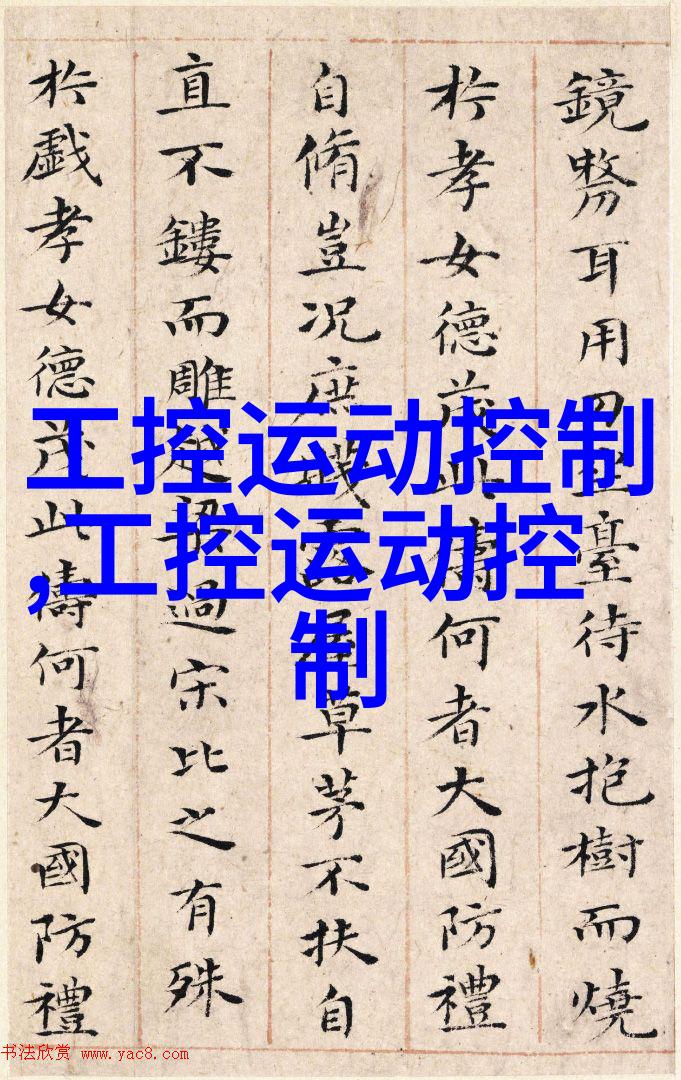 鏡剺耳用刀坐臺待水抱樹而燒
於孝女德茂此儔何者大國防禮
自脩豈況庶賤露屋草茅不扶自
直不鏤而雕越梁過宋比之有殊
於戲孝女德茂此儔何者大國防禮
工控运动控制
,工控运动控
制
书法欣赏 www.yac8.com